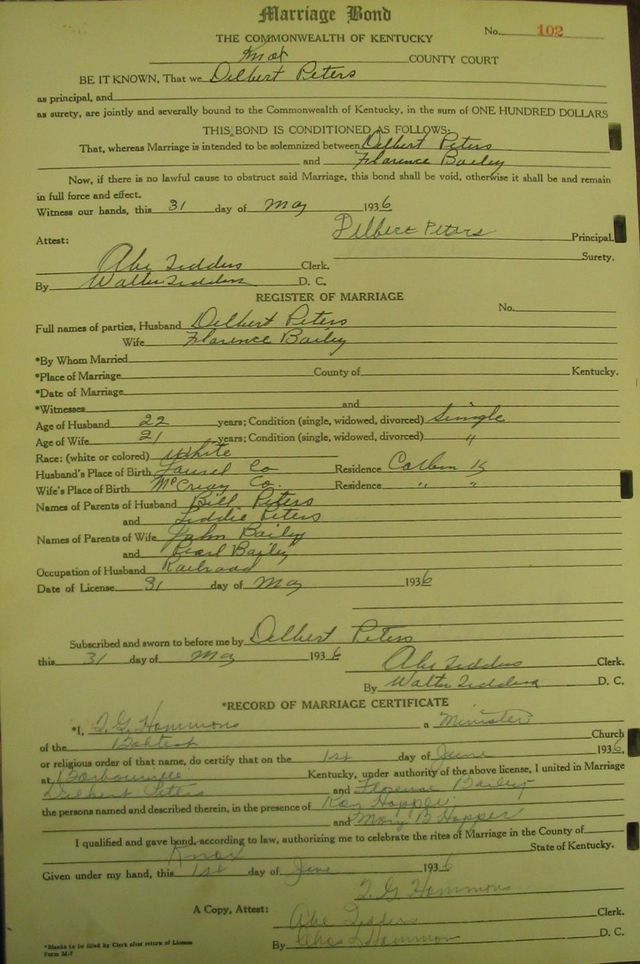 Marriage Bond
No. 102
THE COMMONWEALTH OF KENTUCKY
Knox COUNTY COURT
BE IT KNOWN, That we Delbert Peters
as principal, and
as surety, are jointly and severally bound to the Commonwealth of Kentucky, in the sum of ONE HUNDRED DOLLARS
THIS BOND IS CONDITIONED AS FOLLOWS:
That, whereas Marriage is intended to be solemnized between Delbert Peters
and Florence Bailey
Now, if there is no lawful cause to obstruct said Marriage, this bond shall be void, otherwise it shall be and remain
in full force and effect.
Witness our hands, this 31 day of May 1936
Delbert Peters Principal.
Attest:
Surety.
Abe Clerk.
By Walter D. C.
REGISTER OF MARRIAGE
No.
Full names of parties, Husband Delbert Peters
Wife Florence Bailey
*By Whom Married
*Place of Marriage County of Kentucky.
*Date of Marriage
*Witnesses and
Age of Husband 22 years; Condition (single, widowed, divorced) Single
Age of Wife 21 years; Condition (single, widowed, divorced) "
Race: (white or colored) White
Husband's Place of Birth Laurel Co Residence Corbin Ky
Wife's Place of Birth McCreay Co. Residence " "
Names of Parents of Husband Bill Peters
and Liddie Peters
Names of Parents of Wife John Bailey
and Pearl Bailey
Occupation of Husband Railroad
Date of License 31 day of May 1936
Subscribed and sworn to before me by Delbert Peters
this 31 day of May 1936
Abe Clerk.
By Walter D. C.
*RECORD OF MARRIAGE CERTIFICATE
*I, T. G. Hammons a Minister
of the Babtest Church
or religious order of that name, do certify that on the 1st day of June 1936,
at Barbourville Kentucky, under authority of the above license, I united in Marriage
Delbert Peters and Florence Bailey
the persons named and described therein, in the presence of Ray Hopper
and Mary B Hopper
I qualified and gave bond, according to law, authorizing me to celebrate the rites of Marriage in the County of
Knox State of Kentucky.
Given under my hand, this 1st day of June 1936
T. G. Hammons
A Copy, Attest: Abe Clerk.
By Hammon D. C.
*Blanks to be filled by Clerk after return of License
Form M-7